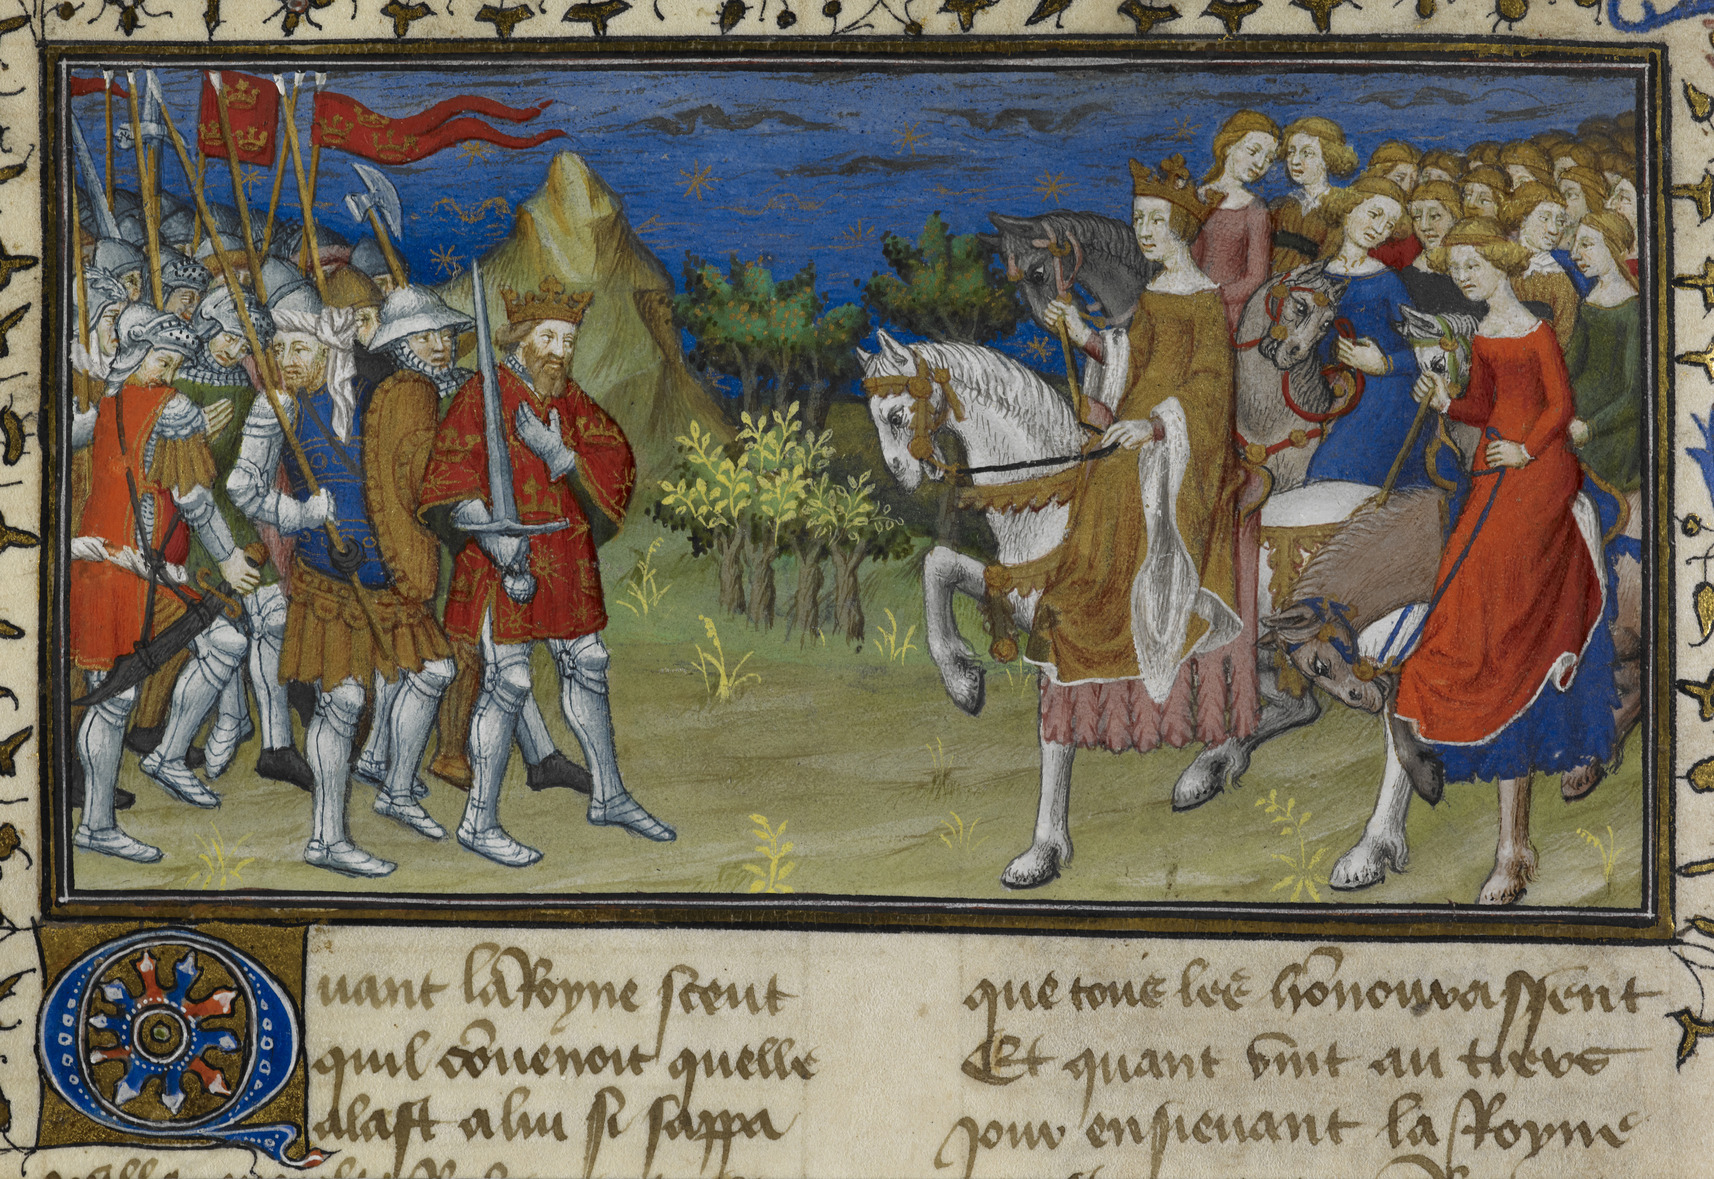 Quant la Royne sceut
quil couenoit quelle
alast a lui si sappa
que tous les honourassent
Et quant vint au tiers
jour ensieuant la Royne